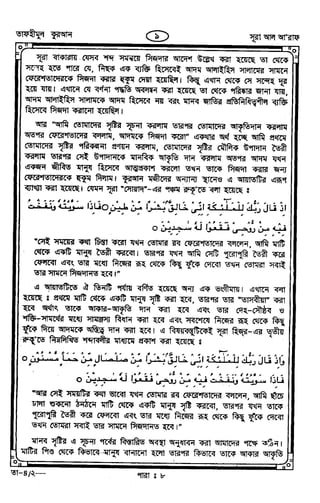 তাফহীমুল কুরআন
৯
সূরা আল আ'রাফ
সূরা বাকারায় যেসব শব্দ সমন্বয়ে সিজদার আদেশ উল্লেখ করা হয়েছে তা থেকে
সন্দেহ হতে পারে যে, নিছক এক ব্যক্তি হিসেবেই আদম আলাইহিস সালামের সামনে
ফেরেশতাদেরকে সিজদা করার হুকুম দেয়া হয়েছিল। কিন্তু এখানে থেকে সে সন্দেহ দূর
হয়ে যায়। এখানে যে বর্ণনা পদ্ধতি অবলম্বন করা হয়েছে তা থেকে পরিষ্কার জানা যায়,
আদম আলাইহিস সালামকে আদম হিসেবে নয় বরং মানব জাতির প্রতিনিধিত্বশীল ব্যক্তি
হিসেবে সিজদা করানো হয়েছিল।
আর "আমি তোমাদের সৃষ্টির সূচনা করলাম তারপর তোমাদের আকৃতিদান করলাম
অতপর ফেরেশতাদের বললাম, আদমকে সিজদা করো" একথার অর্থ হচ্ছে আমি প্রথমে
তোমাদের সৃষ্টির পরিকল্পনা প্রণয়ন করলাম, তোমাদের সৃষ্টির মৌলিক উপাদান তৈরী
করলাম তারপর সেই উপাদানকে মানবিক আকৃতি দান করলাম অতপর আদম যখন
একজন জীবিত মানুষ হিসেবে আত্মপ্রকাশ করলো তখন তাকে সিজদা করার জন্য
ফেরেশতাদেরকে হুকুম দিলাম। কুরআন মজীদের অন্যান্য স্থানেও এ আয়াতটির এরূপ
ব্যাখ্যা করা হয়েছে। যেমন সূরা "সোয়াদ"-এর পঞ্চম রুকু'তে বলা হয়েছে ঃ
إِذْ قَالَ رَبُّكَ لِلْمَلَٰئِكَةِ إِنِّي خَالِقٌ بَشَرًا مِّن طِينٍ ○ فَإِذَا سَوَّيْتُهُ وَنَفَخْتُ
فِيهِ مِن رُّوحِي فَقَعُوا لَهُ سَاجِدِينَ ○
"সেই সময়ের কথা চিন্তা করো যখন তোমার রব ফেরেশতাদের বললেন, আমি মাটি
থেকে একটি মানুষ তৈরী করবো। তারপর যখন আমি সেটি পুরোপুরি তৈরী করে
ফেলবো এবং তার মধ্যে নিজের রূহ থেকে কিছু ফুঁকে দেবো তখন তোমরা সবাই
তার সামনে সিজদানত হবে।"
এ আয়াতটিতে ঐ তিনটি পর্যায় বর্ণিত হয়েছে অন্য এক ভংগীমায়। এখানে বলা
হয়েছে ঃ প্রথমে মাটি থেকে একটি মানুষ সৃষ্টি করা হবে, তারপর তার "তাসবীয়া" করা
হবে অর্থাৎ তাকে আকার-আকৃতি দান করা হবে এবং তার দেহ-সৌষ্ঠব ও
শক্তি-সামর্থের মধ্যে সামঞ্জস্য বিধান করা হবে এবং সবশেষে নিজের রূহ থেকে কিছু
ফুঁকে দিয়ে আদমকে অস্তিত্ব দান করা হবে। এ বিষয়বস্তুটিকেই সূরা হিজর-এর তৃতীয়
রুকূ'তে নিম্নলিখিত শব্দাবলীর মাধ্যমে প্রকাশ করা হয়েছে ঃ
وَإِذْ قَالَ رَبُّكَ لِلْمَلَٰئِكَةِ إِنِّي خَالِقٌ بَشَرًا مِّن صَلْصَالٍ مِّنْ حَمَإٍ مَّسْنُونٍ ○
فَإِذَا سَوَّيْتُهُ وَنَفَخْتُ فِيهِ مِن رُّوحِي فَقَعُوا لَهُ سَاجِدِينَ ○
"আর সেই সময়টির কথা ভাবো যখন তোমার রব ফেরেশতাদের বললেন, আমি ছাঁচে
ঢালা শুকনো ঠনঠনে মাটি থেকে একটি মানুষ সৃষ্টি করবো, তারপর যখন তাকে
পুরোপুরি তৈরী করে ফেলবো এবং তার মধ্যে নিজের রূহ থেকে কিছু ফুঁকে দেবো
তখন তোমরা সবাই তার সামনে সিজদানত হবে।"
মানব সৃষ্টির এ সূচনা পর্বের বিস্তারিত অবস্থা অনুধাবন করা আমাদের পক্ষে কঠিন।
মাটির পিণ্ড থেকে কিভাবে মানুষ বানানো হলো তারপর কিভাবে তাকে আকার আকৃতি
তা-৪/২—
পারা ঃ ৮